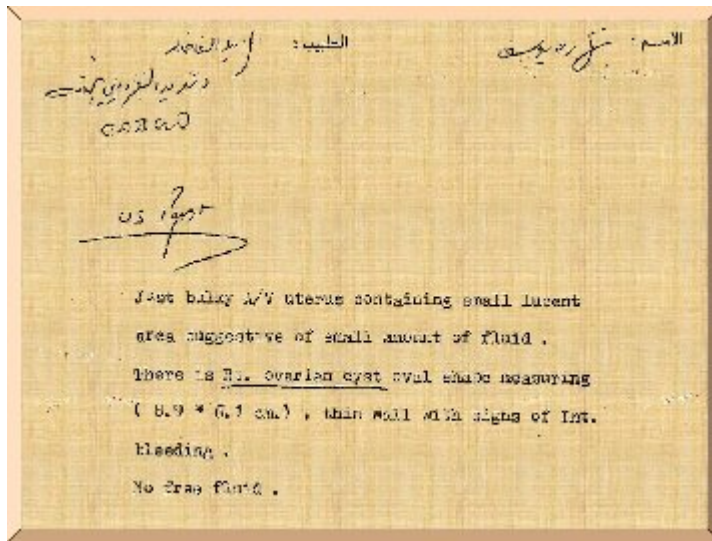 الاسم: الطبيب:
US
Just bulky A/V uterus containing small lucent
area suggestive of small amount of fluid .
There is Rt. ovarian cyst oval shape measuring
( 8.9 * cm.) , thin wall with signs of Int.
bleeding .
No free fluid .